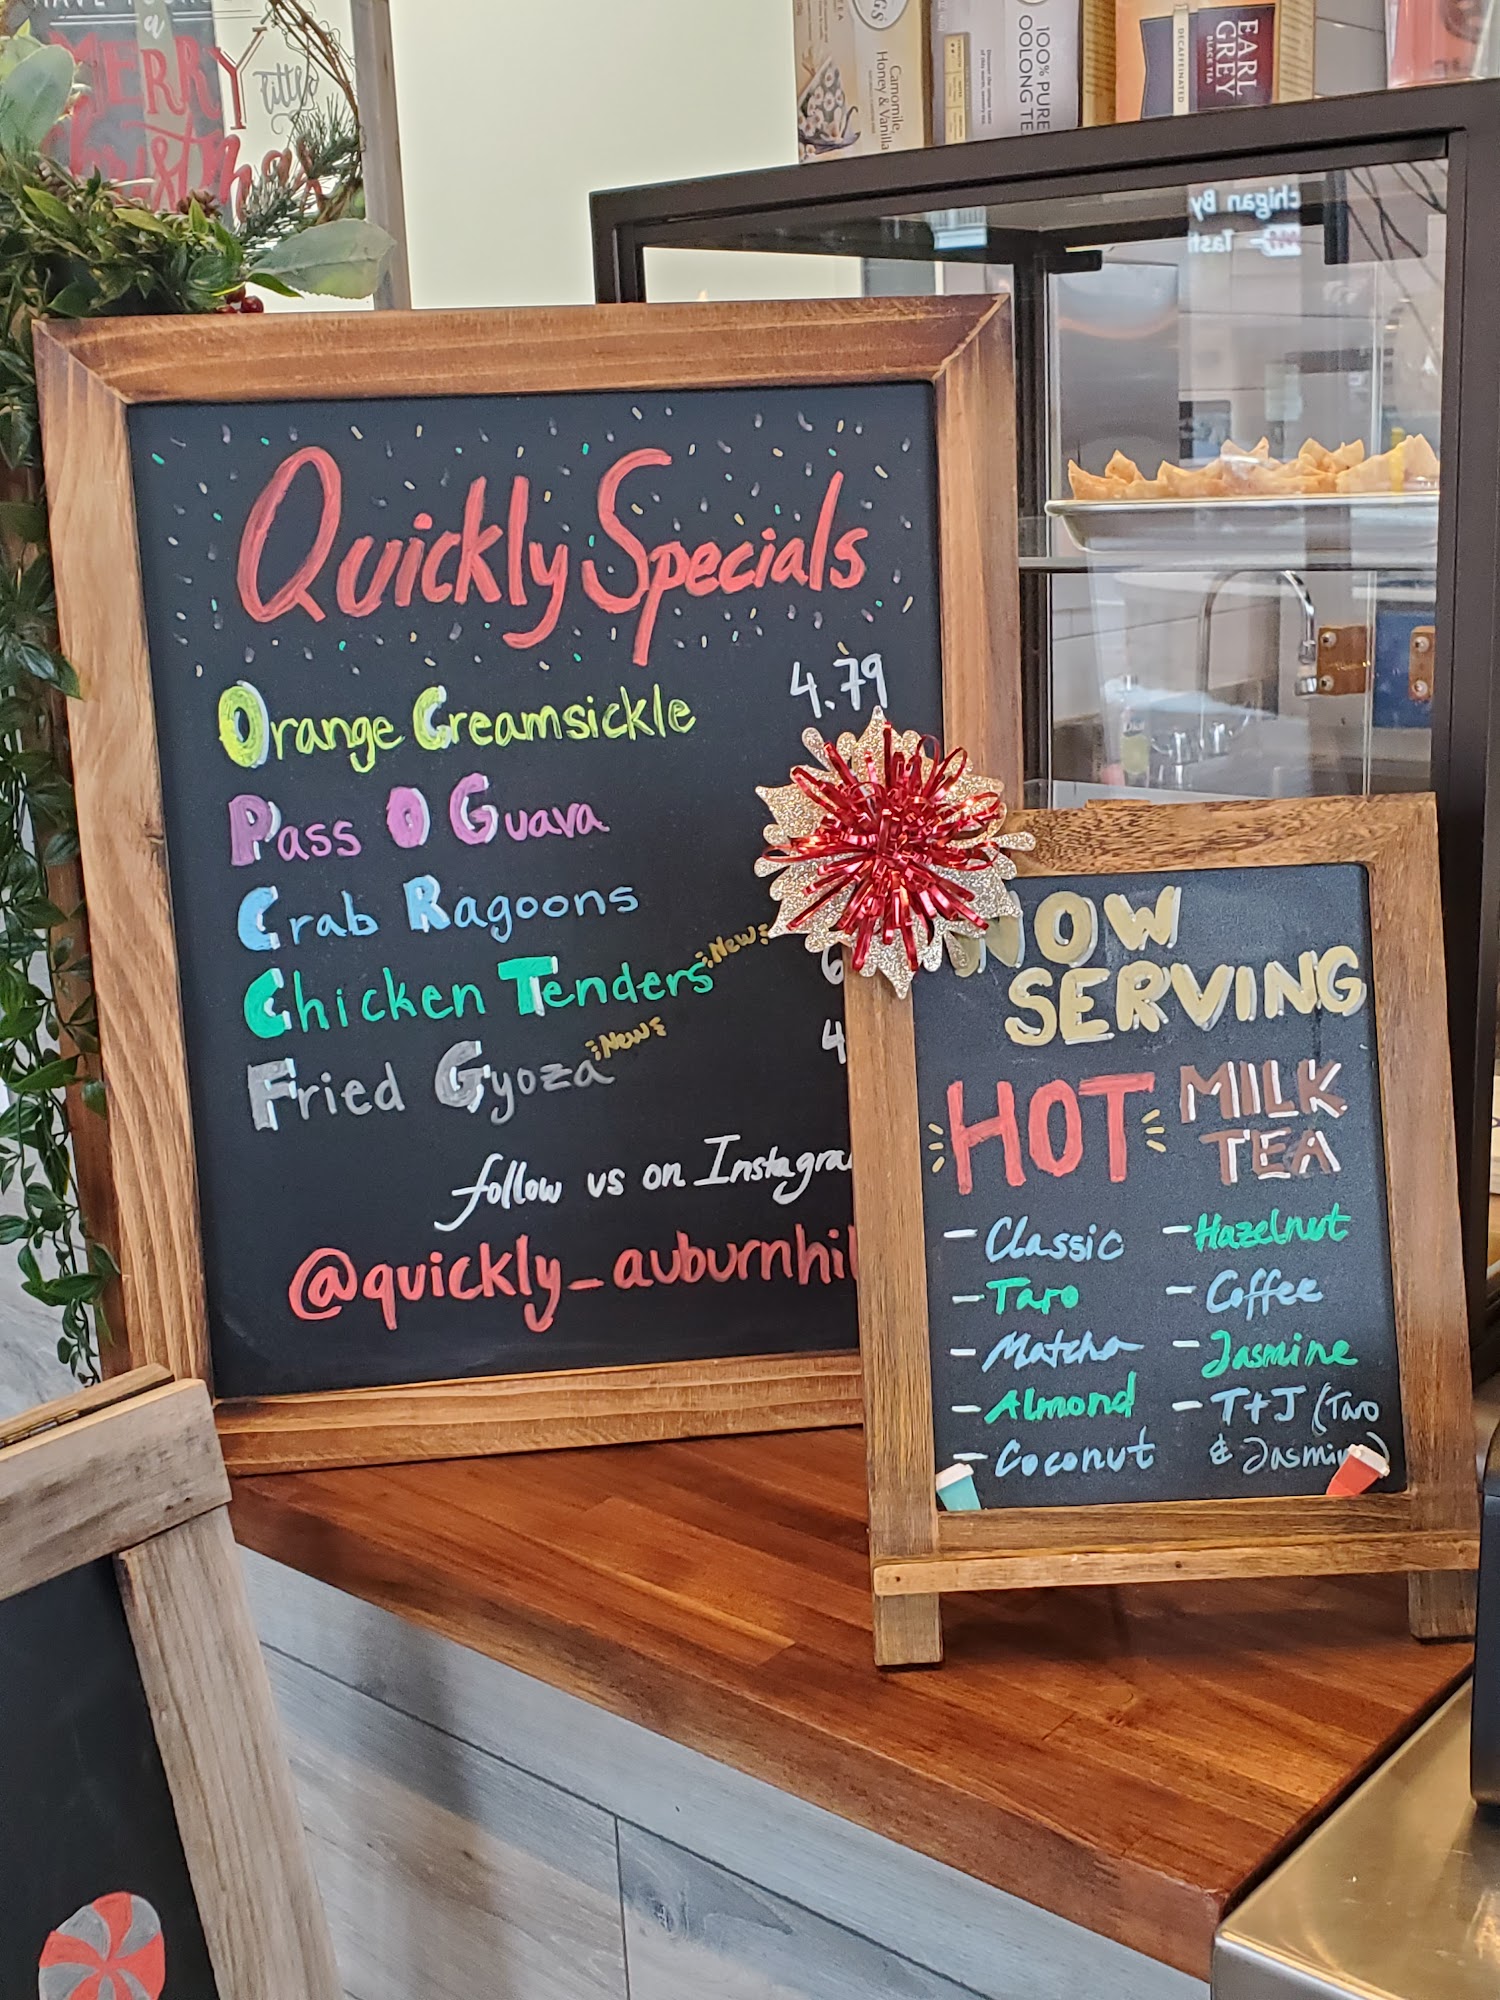 a
MERRY
little
Christmas
Camomile,
Honey & Vanilla
100% PURE
OOLONG TE
EARL
GREY
BLACK TEA
DECAFFEINATED
chigan By
Quickly Specials
Orange Creamsickle 4.79
Pass O Guava
Crab Ragoons
Chicken Tenders New 6
Fried Gyoza New 4
follow us on Instagra
@quickly_auburnhil
NOW
SERVING
HOT MILK
TEA
- Classic
- Taro
- Matcha
- Almond
- Coconut
- Hazelnut
- Coffee
- Jasmine
- T+J (Taro
& Jasmin)